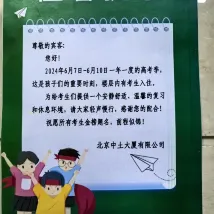 尊敬的宾客:
您好!
2024年6月7日-6月10日一年一度的高考季,
这是孩子们的重要时刻,楼层内有考生入住,
为给考生们提供一个安静舒适、温馨的复习
和休息环境,请大家轻声慢行,感谢您的配合!
祝愿所有考生金榜题名,前程似锦!
北京中土大厦有限公司